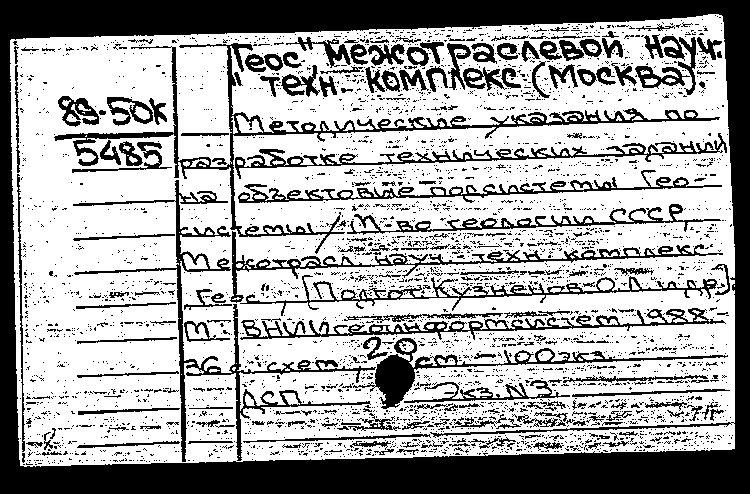 "Геос", межотраслевой науч.-
техн. комплекс (Москва).
89-50к
5485
Методические указания по
разработке технических заданий
на объектовые подсистемы Гео-
системы / М-во геологии СССР,
Межотрасл. науч.-техн. комплекс
"Геос"; [Подгот. Кузнецов О.Л. и др.].-
М.: ВНИИгеоинформсистем, 1988.-
36 с.: схем.; 20 см. - 100 экз.
ДСП. Экз. N3.